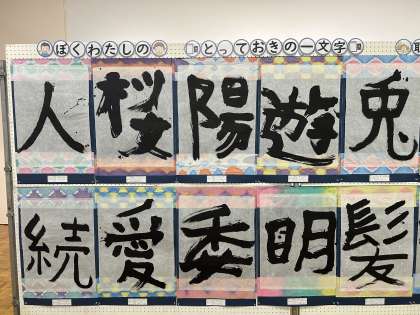 ぼくわたしの
とっておきの一文字
人 桜 陽 遊 兎
続 愛 委 明 髪